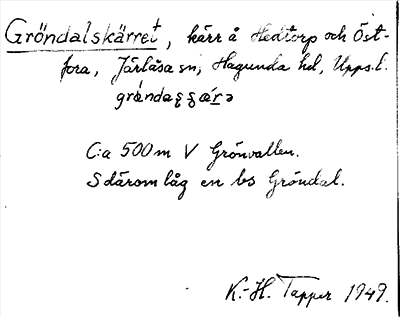 Gröndalskärret, kärr å Hedtorp och Öst-
fora, Järlåsa sn, Hagunda hd, Upps.l.
C:a 500m V Grönvallen.
S därom låg en bs Gröndal.
K.-H. Tapper 1949.